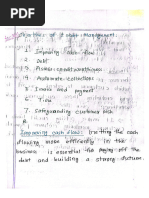 Objectives of Debtor Management
1. Improving cash flow
2. Debt
3.
4. Automate collections
5. Invoice and payment
6. Time
7. Safeguarding customer risk
Improving cash flow: Getting the cash
flowing more efficiently in the
business is essential for paying off the
debt and building a strong